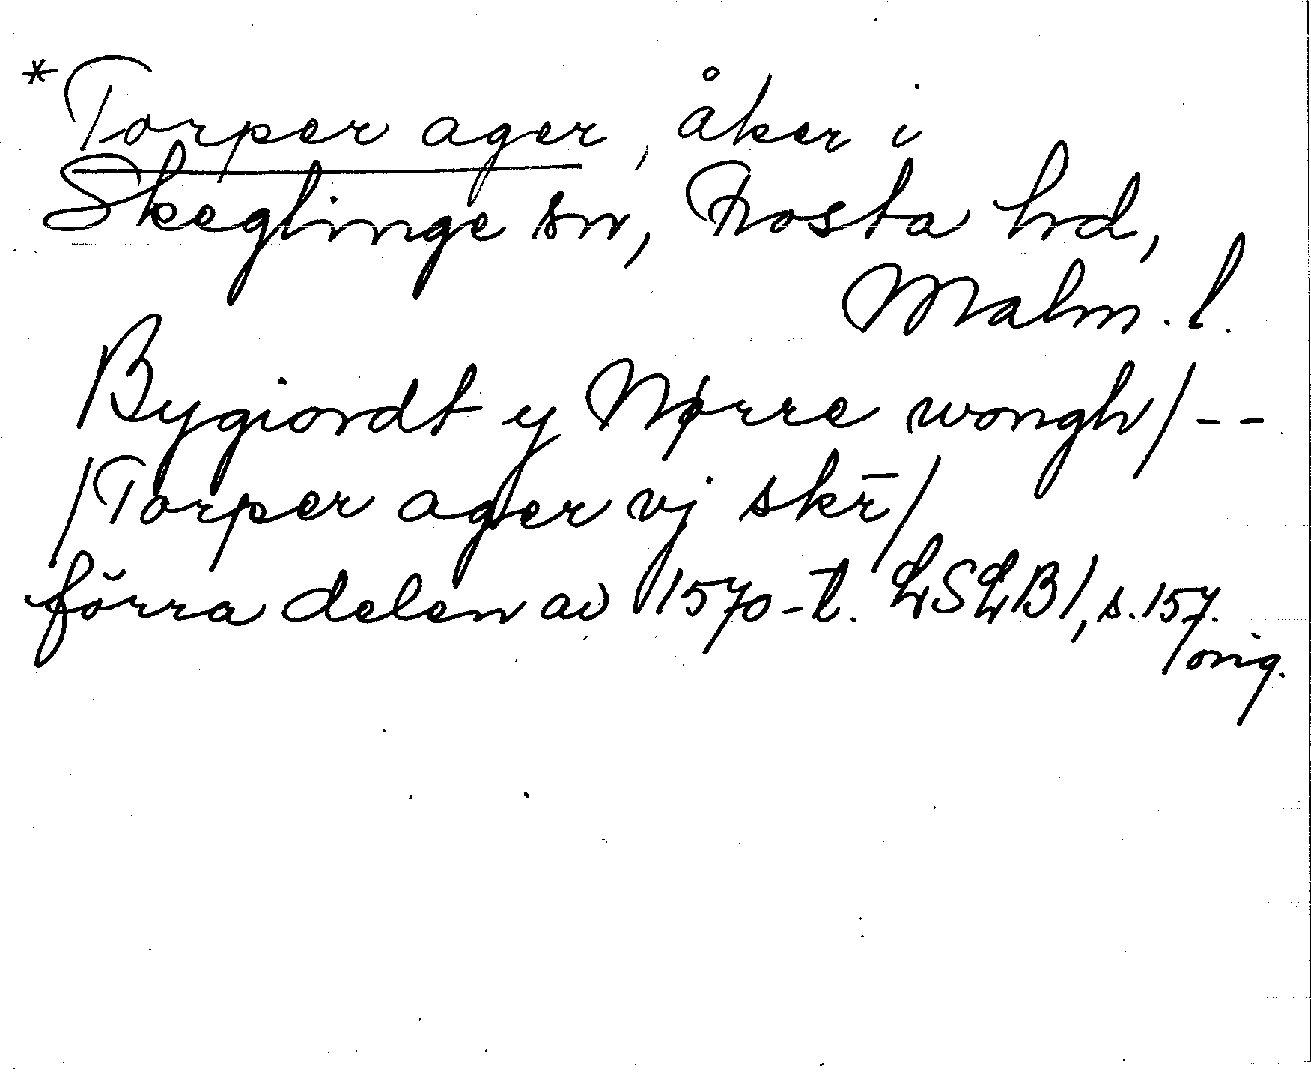 *Torper ager, åker i
Skeglinge sn, Frosta hd,
Malm. l.
Bygiordt y Nørre wongh/--
/Torper ager vj skr̄/
förra delen av 1570-t. LSLB 1, s. 157.
/orig.